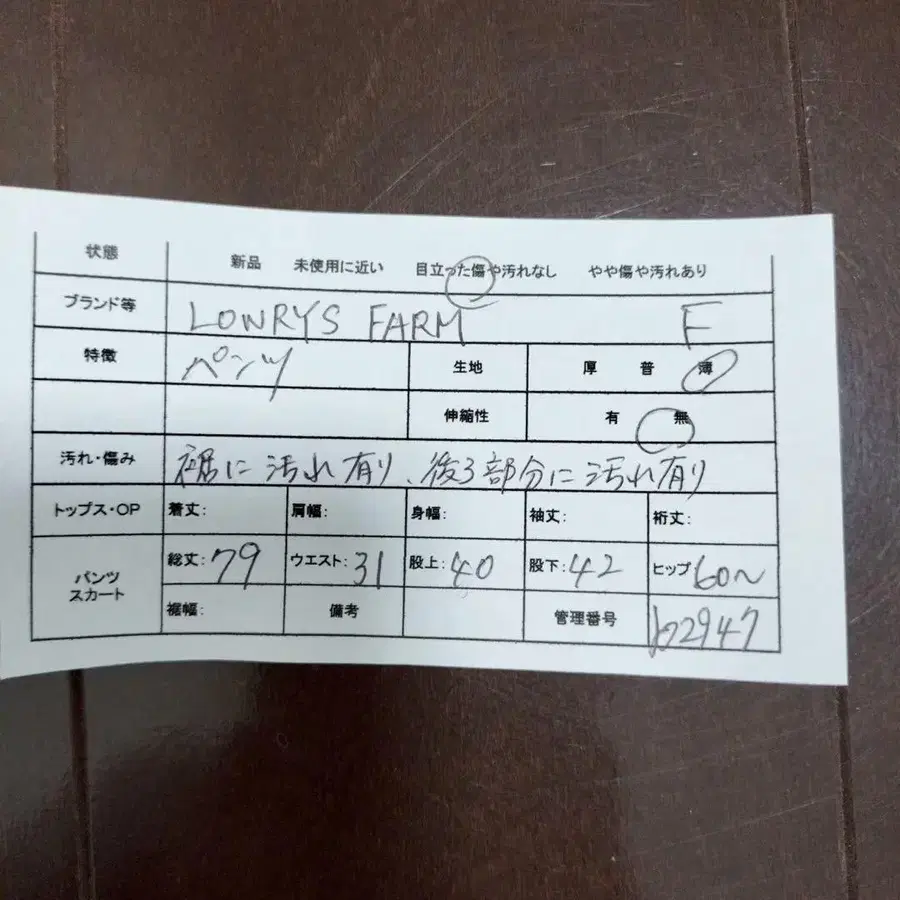 状態 新品 未使用に近い 目立った傷や汚れなし やや傷や汚れあり
ブランド等 LOWRYS FARM F
特徴 パンツ 生地 厚 普 薄
伸縮性 有 無
汚れ・傷み 裾に汚れ有り、後ろ部分に汚れ有り
トップス・OP 着丈: 肩幅: 身幅: 袖丈: 裄丈:
パンツ スカート 総丈:79 ウエスト:31 股上:40 股下:42 ヒップ60〜
裾幅: 備考 管理番号 b2947